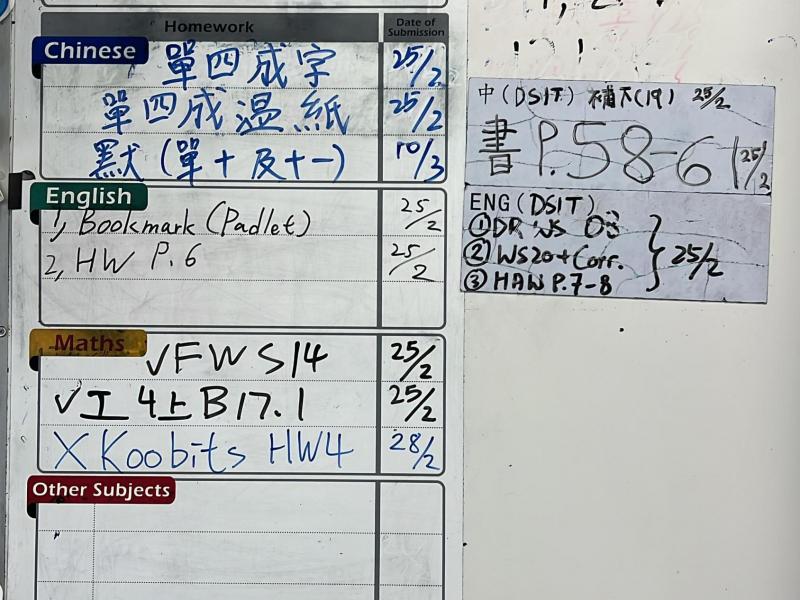 Homework
Date of Submission
Chinese
單四成字 25/2
單四成溫紙 25/2
默(單十及十一) 10/3
English
1, Bookmark (Padlet) 25/2
2, HW P.6 25/2
Maths
√FWS14 25/2
√工4上B17.1 25/2
X Koobits HW4 28/2
Other Subjects
中(DSIT) 25/2
書P.58-61 25/2
ENG (DSIT)
①DR WS
②WS20+Corr. 25/2
③HAW P.7-8